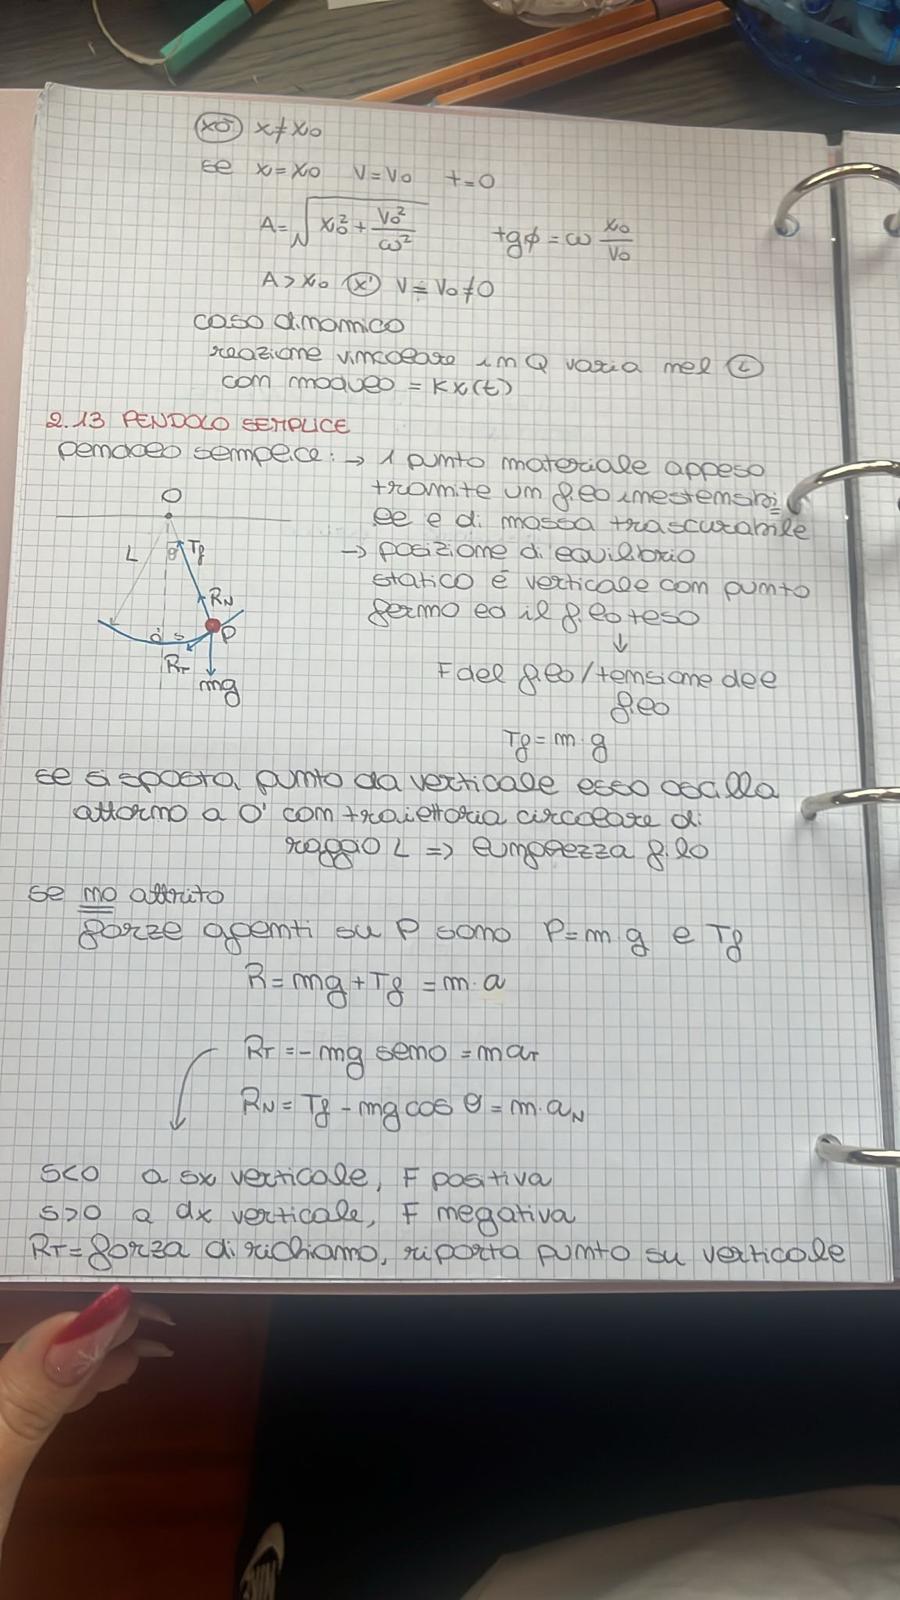 (xò) x≠x₀
se x=x₀ v=v₀ t=0
A=√(x₀²+v₀²/ω²) tgϕ=ω x₀/v₀
A>x₀ v=v₀≠0
caso dinamico
reazione vincolare in Q varia nel (t)
con modulo = kx(t)
2.13 PENDOLO SEMPLICE
pendolo semplice: → 1 punto materiale appeso
tramite un filo inestensibi=
le e di massa trascurabile
→ posizione di equilibrio
statico é verticale con punto
fermo ed il filo teso
↓
F del filo/tensione del
filo
Tf = m·g
O
L
θ
Tf
RN
P
o'
s
RT
mg
se si sposta punto da verticale esso oscilla
attorno a O' con traiettoria circolare di
raggio L => lunghezza filo
se no attrito
forze agenti su P sono P=m·g e Tf
R=mg+Tf=m·a
RT=-mg senθ=maT
RN=Tf-mgcos θ=m·aN
s<0 a sx verticale, F positiva
s>0 a dx verticale, F negativa
RT=forza di richiamo, riporta punto su verticale